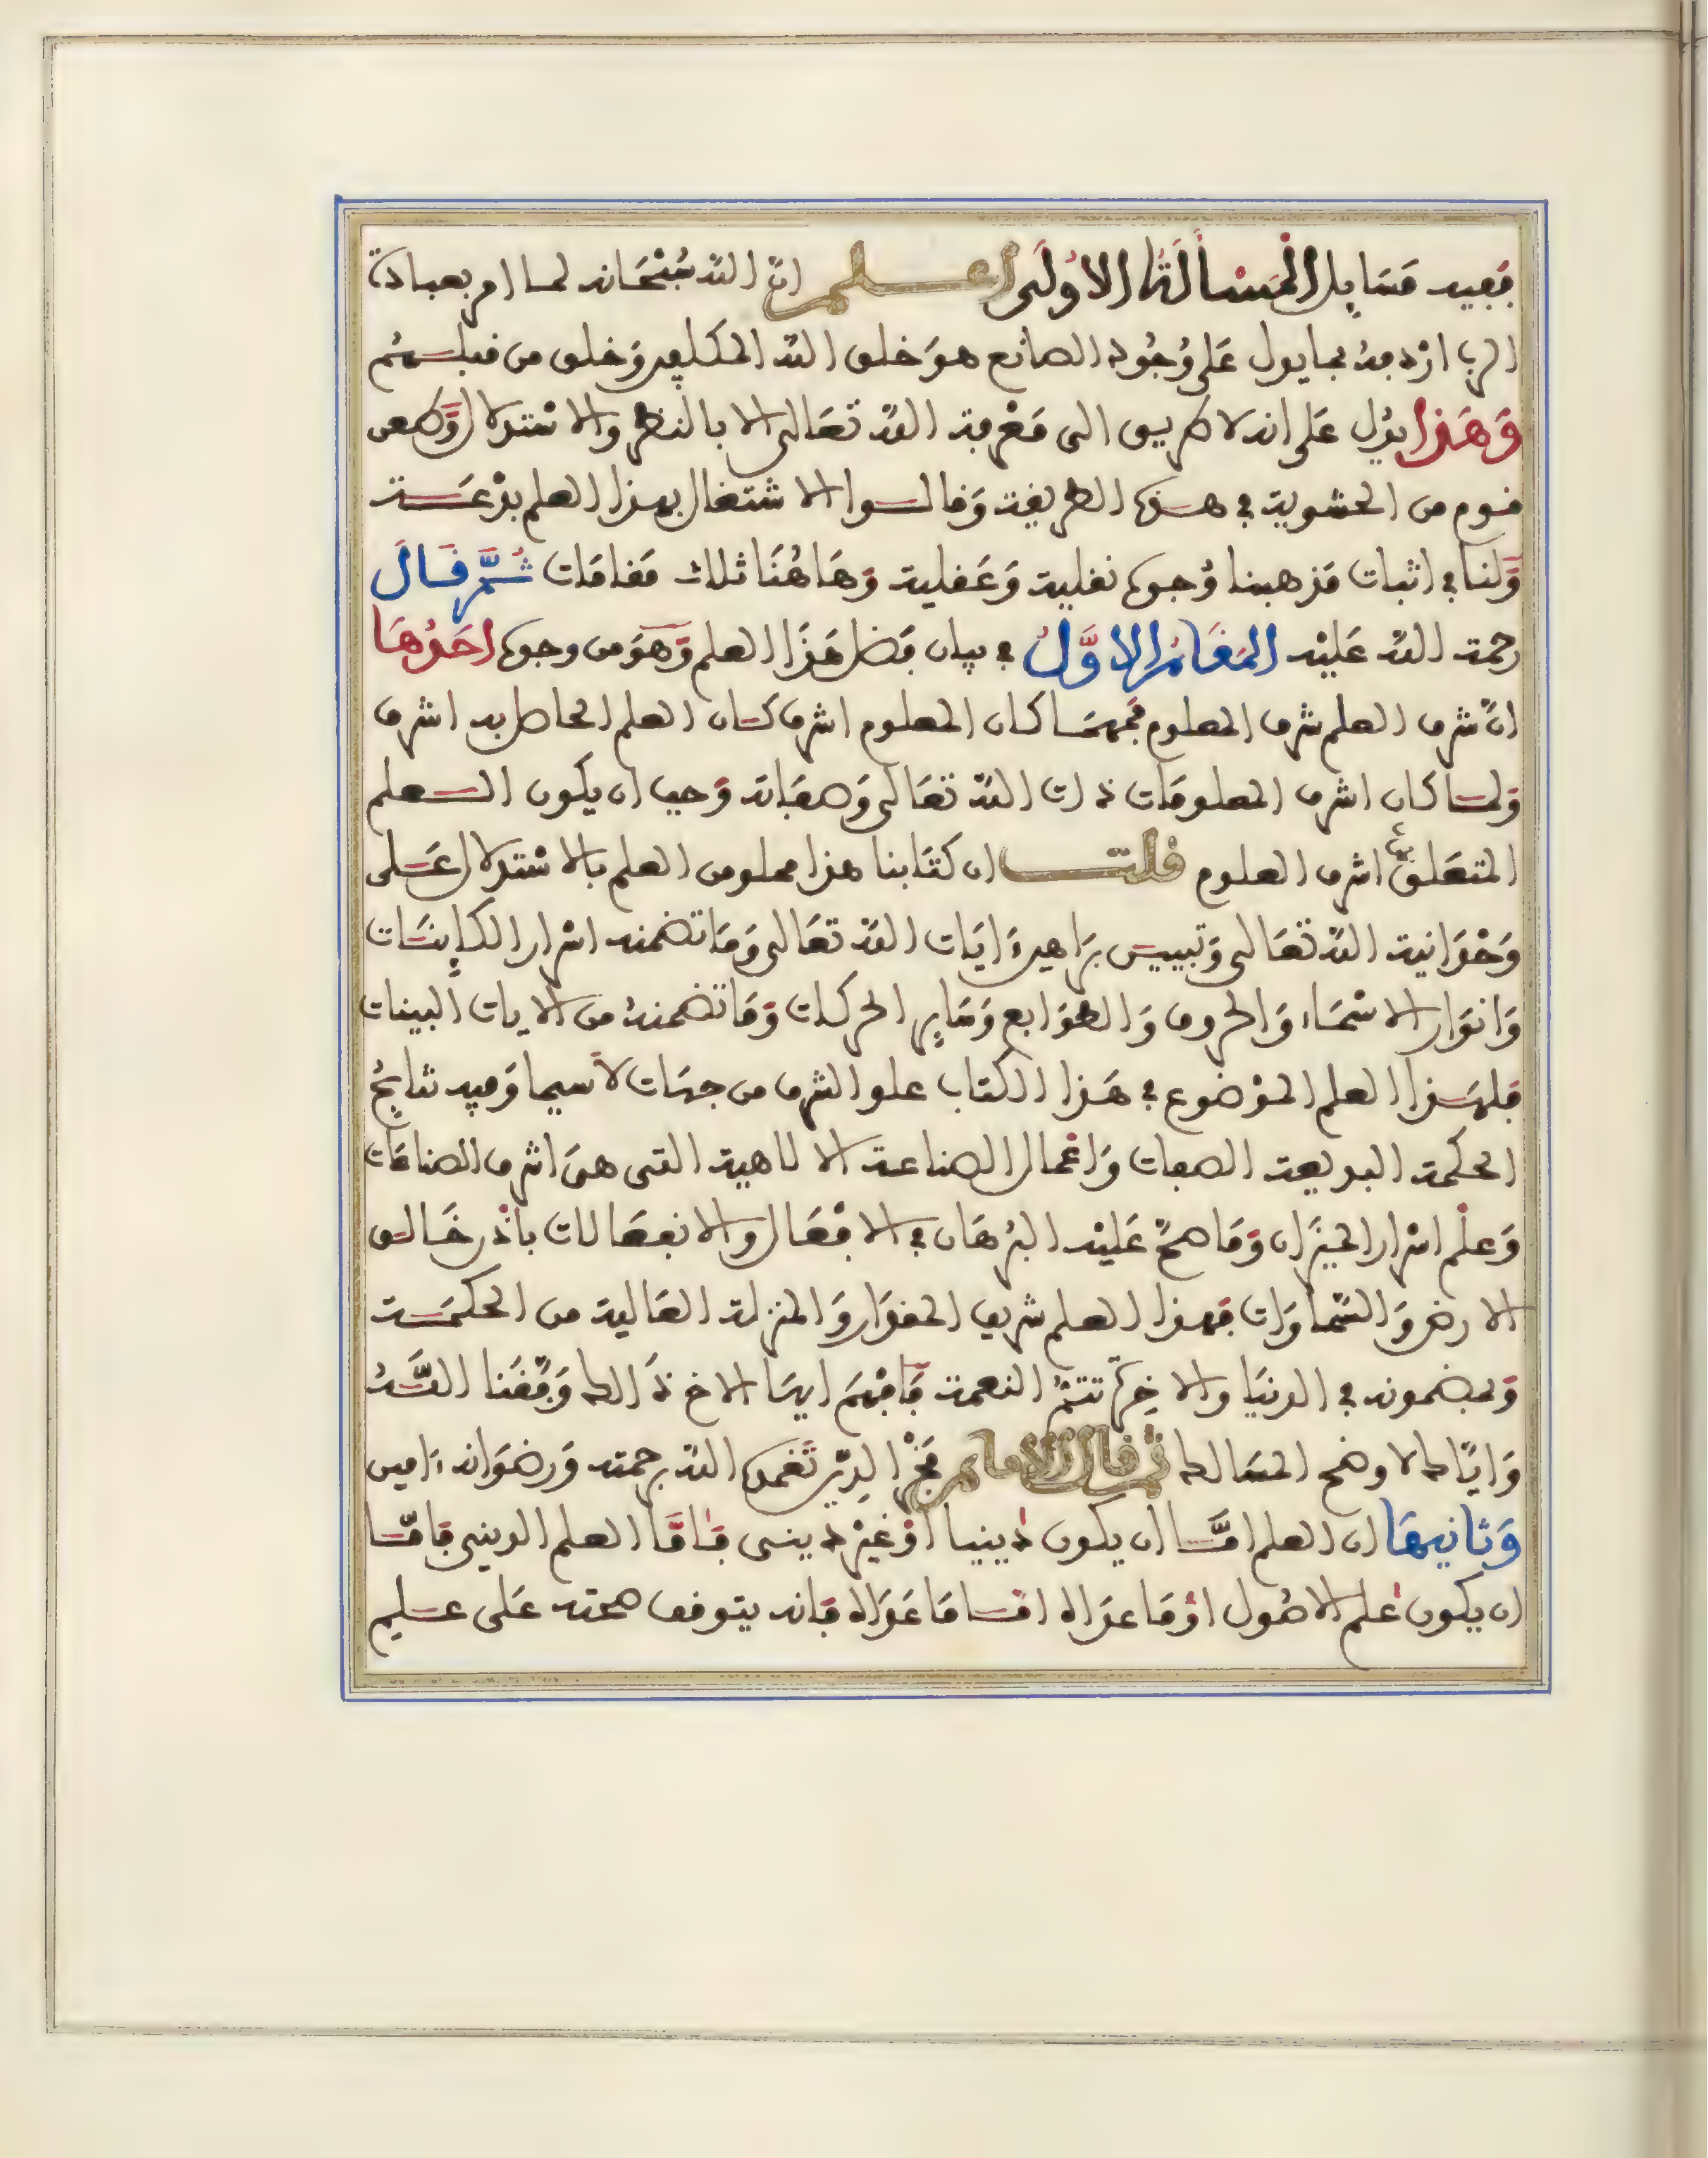 ففيه مسايل المسألة الاولى اعلم ان الله سبحانه لما امر بعبادة
الرب اردفه بما يدل على وجود الصانع هو خلق الله المكلفين وخلق من قبلهم
وهذا يدل على انه لا طريق الى معرفة الله تعالى الا بالنظر والاستدلال وطعن
قوم من الحشوية في هذه الطريقة وقالوا الاشتغال بهذا العلم بدعة
ولنا في اثبات مذهبنا وجوه نقلية وعقلية وهاهنا ثلاث مقامات ثم قال
رحمة الله عليه المقام الاول في بيان فضل هذا العلم وهو من وجوه احدها
ان شرف العلم شرف المعلوم فمهما كان المعلوم اشرف كان العلم الحاصل به اشرف
ولما كان اشرف المعلومات ذات الله تعالى وصفاته وجب ان يكون العلم
المتعلق به اشرف العلوم قلت ان كتابنا هذا مملو من العلم بالاستدلال على
وحدانية الله تعالى وتبيين براهين ءايات الله تعالى وما تضمنه اسرار الكاينات
وانوار الاسماء والحروف والطوابع وساير الحركات وما تضمنه من الايات البينات
فلهذا العلم الموضوع في هذا الكتاب علو الشرف من جهات لا سيما وفيه نتايج
الحكمة البديعة الصفات واعمال الصناعة الالاهية التي هي اشرف الصناعات
وعلم اسرار الميزان وما صح عليه البرهان في الافعال والانفعالات باذن خالق
الارض والسماوات فهذا العلم شريف المقدار والمنزلة العالية من الحكمة
وبمضمونه في الدنيا والاخرة تتم النعمة فافهم ايها الاخ ذالك وفقنا الله
واياك لاوضح المسالك ثم قال الامام فخر الدين تغمده الله برحمته ورضوانه ءامين
وثانيها ان العلم اما ان يكون دينيا او غير ديني فاما العلم الديني فاما
ان يكون علم الاصول او ما عداه اما ما عداه فانه يتوقف صحته على علم